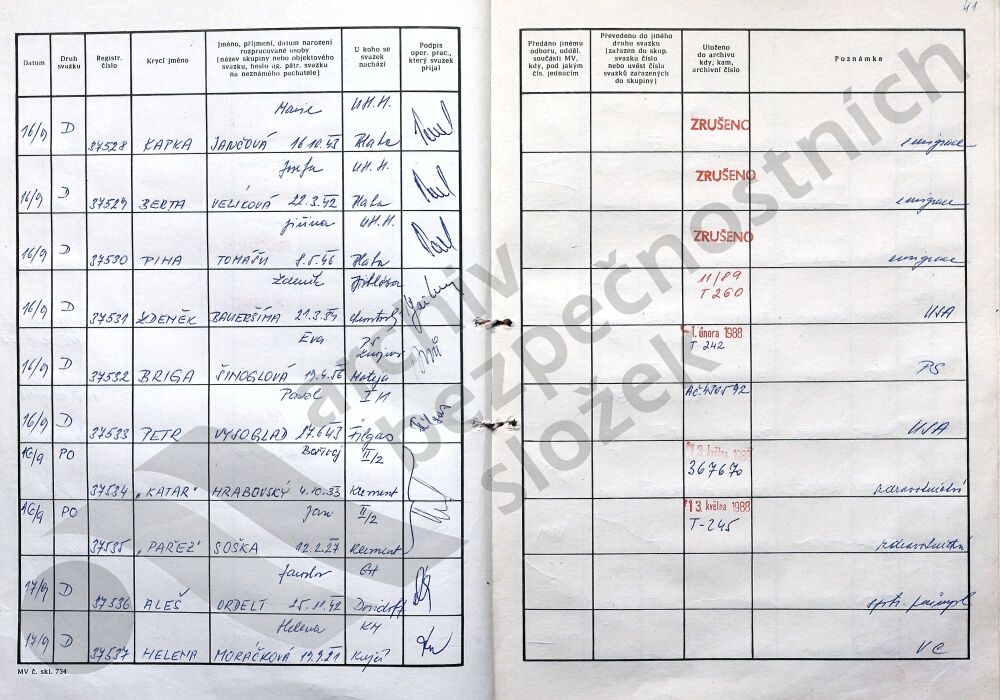 41
Datum
Druh svazku
Registr. číslo
Krycí jméno
Jméno, příjmení, datum narození rozpracované osoby (název skupiny nebo objektového svazku, heslo ag. pátr. svazku na neznámého pachatele)
U koho se svazek nachází
Podpis oper. prac., který svazek přijal
Předáno jinému odboru, odděl. součásti MV, kdy, pod jakým čís. jednacím
Převedeno do jiného druhu svazku (zařazen do skup. svazku číslo nebo uvést čísla svazků zařazených do skupiny)
Uloženo do archivu kdy, kam, archivní číslo
Poznámka
Marie
16/9 D 37528 KAPKA JANČOVÁ 16.10.43 Hlaha ZRUŠENO emigrace
Josefa
16/9 D 37529 BERTA VELICOVÁ 22.3.42 Hlaha ZRUŠENO emigrace
Jiřina
16/9 D 37530 PIMA TOMAŠŮ 8.5.46 Hlaha ZRUŠENO emigrace
Zdeněk 11/89
16/9 D 37531 ZDENĚK BAUERŠÍMA T 260 USA
Eva PS 1. února 1988
16/9 D 37532 BRIGA ŠINOGLOVÁ 19.4.56 Mateja T 242 PS
Pavel
16/9 D 37533 PETR VYSOGLAD 27.6.43 Filgas USA
Bořivoj II/2 13. května 1988
16/9 PO 37534 „KATAR" HRABOVSKÝ 4.10.33 Klement 367670 zdravotnictví
Jan II/2 13. května 1988
16/9 PO 37535 „PAŘEZ" SOŠKA 12.2.27 Klement T-245 zdravotnictví
Jaroslav
17/9 D 37536 ALEŠ ORDELT 25.11.42 Davidoff
Helena KM
17/9 D 37537 HELENA MORAČKOVÁ 19.9.21 VC
MV č. skl. 734
archiv
bezpečnostních
složek